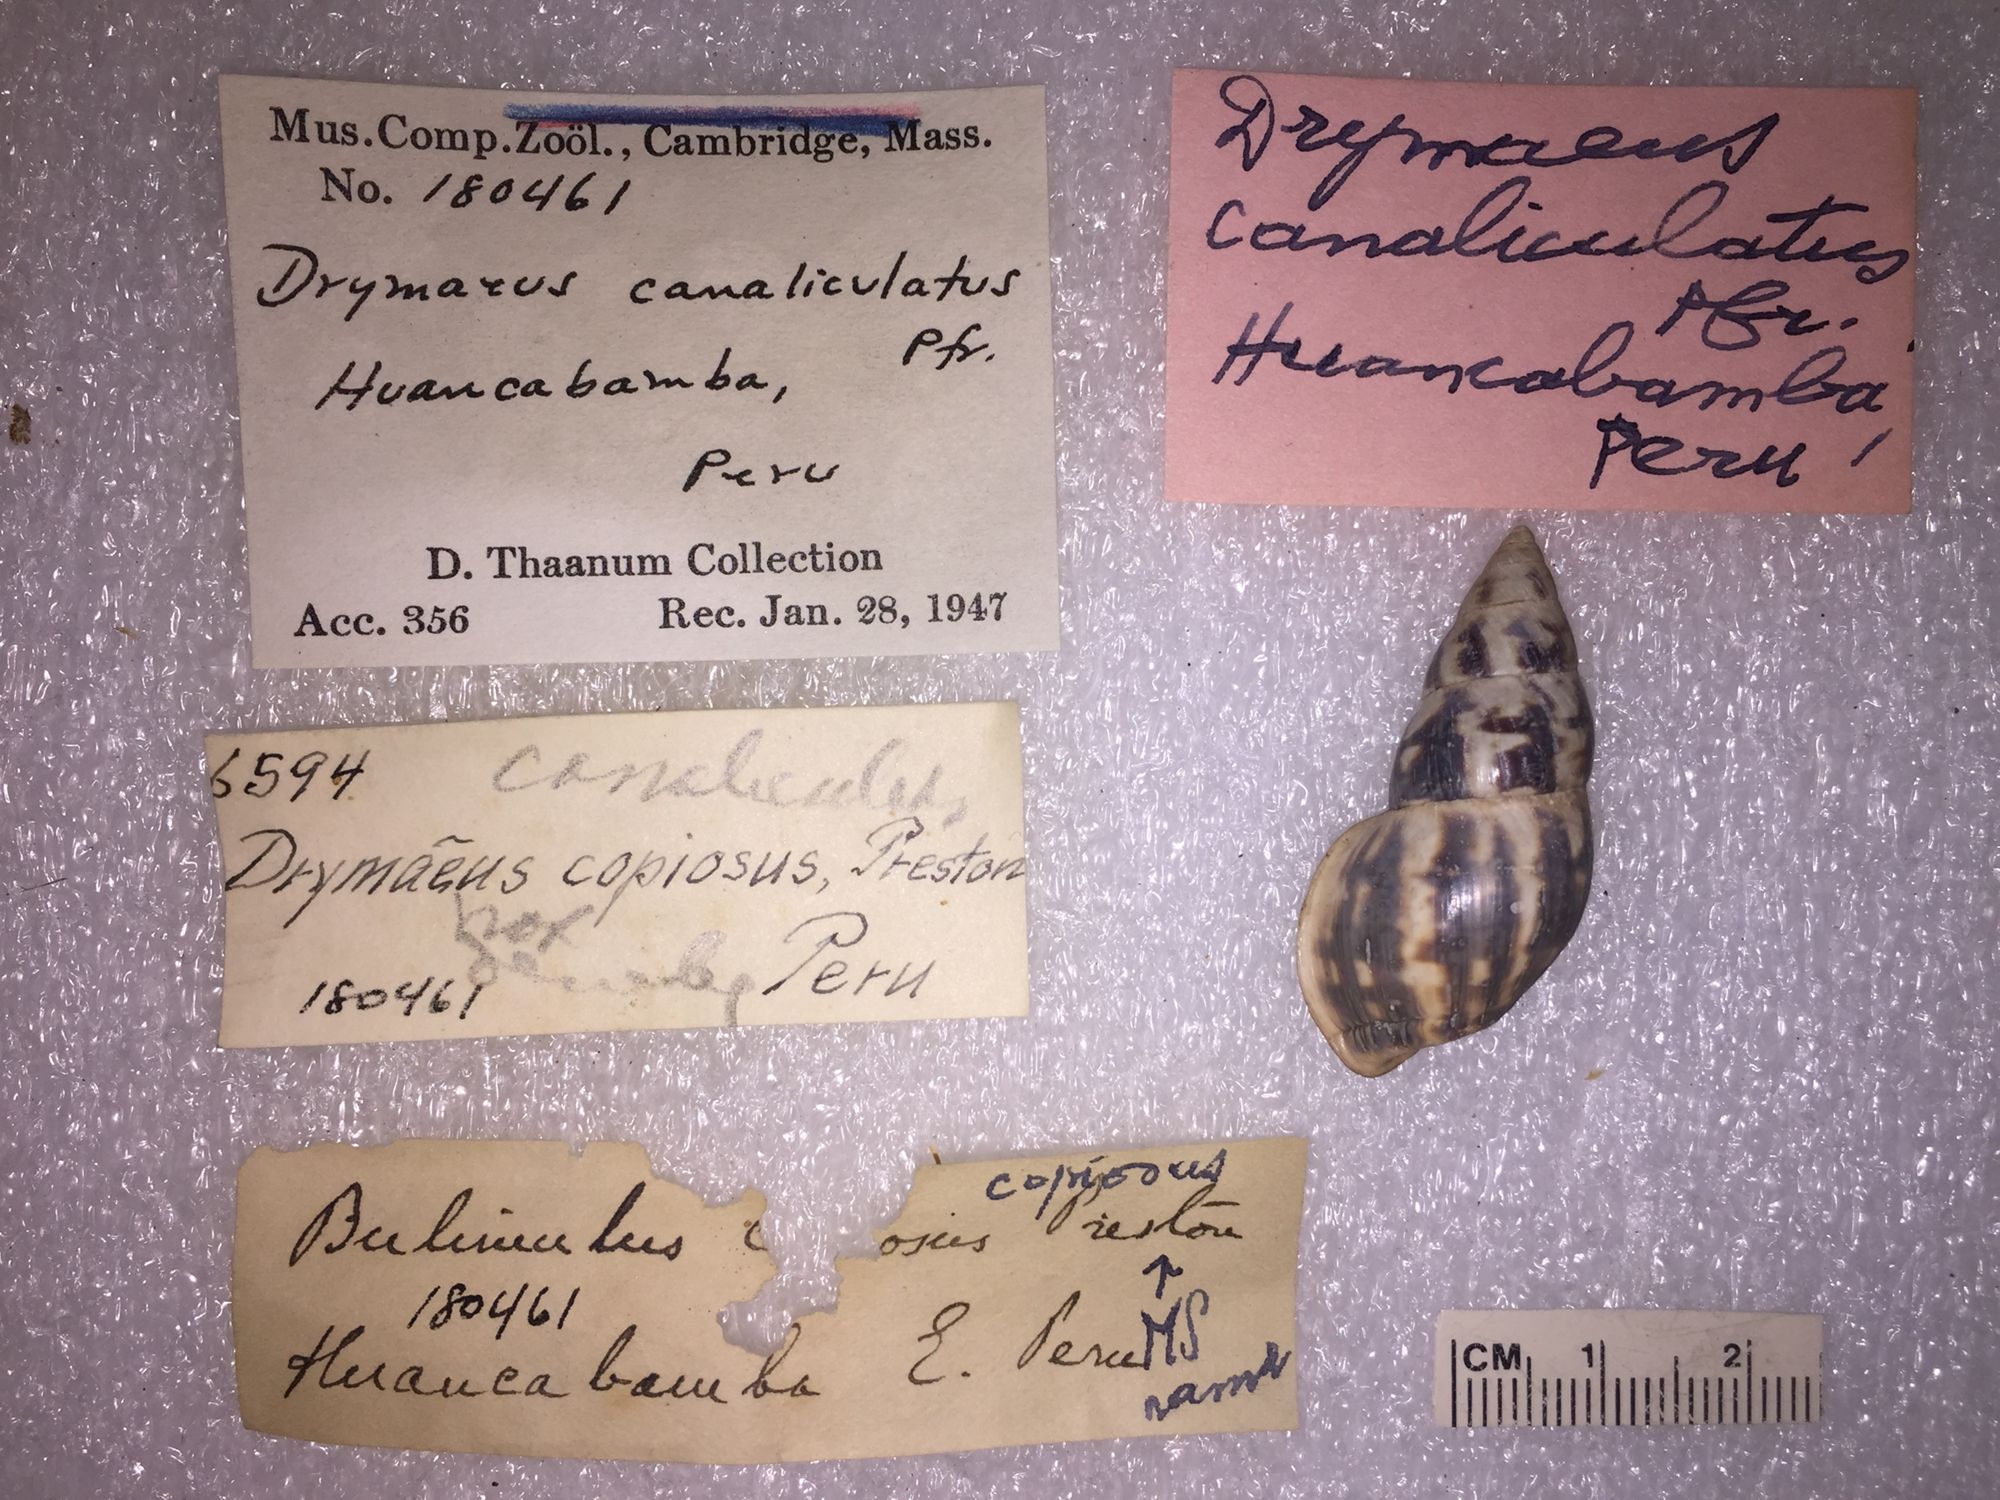 Mus.Comp.Zoöl., Cambridge, Mass.
No. 180461
Drymaeus canaliculatus
Pfr.
Huancabamba,
Peru
D. Thaanum Collection
Acc. 356 Rec. Jan. 28, 1947
Drymaeus
canaliculatus
Pfr.
Huancabamba,
Peru
6594
Drymāēus copiosus, Preston
180461 Peru
copiosus
Bulimulus c osus Preston
↑
180461
MS
Huancabamba E. Peru
name
CM 1 2